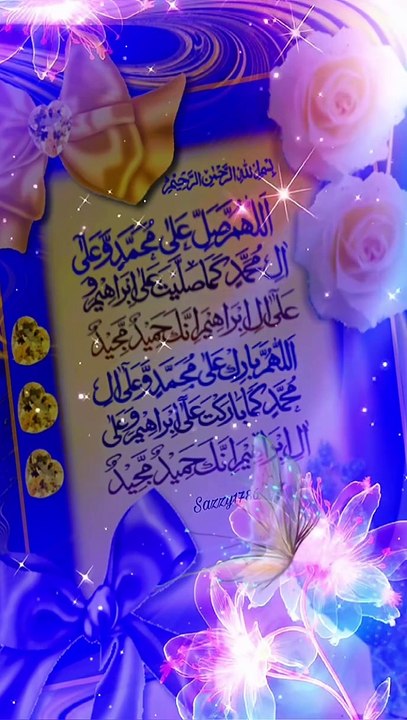 بسم الله الرحمن الرحيم
اللهم صل على محمد وعلى
ال محمد كما صليت على ابراهيم و
على ال ابراهيم انك حميد مجيد
اللهم بارك على محمد وعلى ال
محمد كما باركت على ابراهيم وعلى
ال ابراهيم انك حميد مجيد
Sazzy178